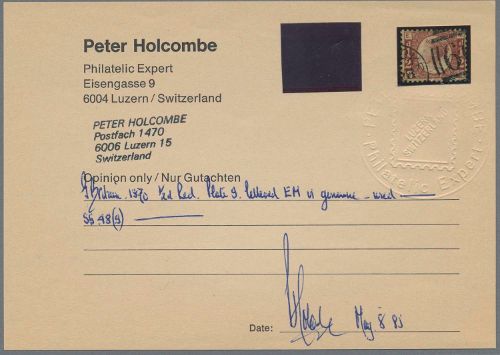 Peter Holcombe
Philatelic Expert
Eisengasse 9
6004 Luzern / Switzerland
PETER HOLCOMBE
Postfach 1470
6006 Luzern 15
Switzerland
Opinion only / Nur Gutachten
Gt Britain 1870 ½d Red. Plate 9. lettered EM is genuine - used
SG 48(9)
Date: May 8 85
LUZERN
SWITZERLAND
Philatelic Expert